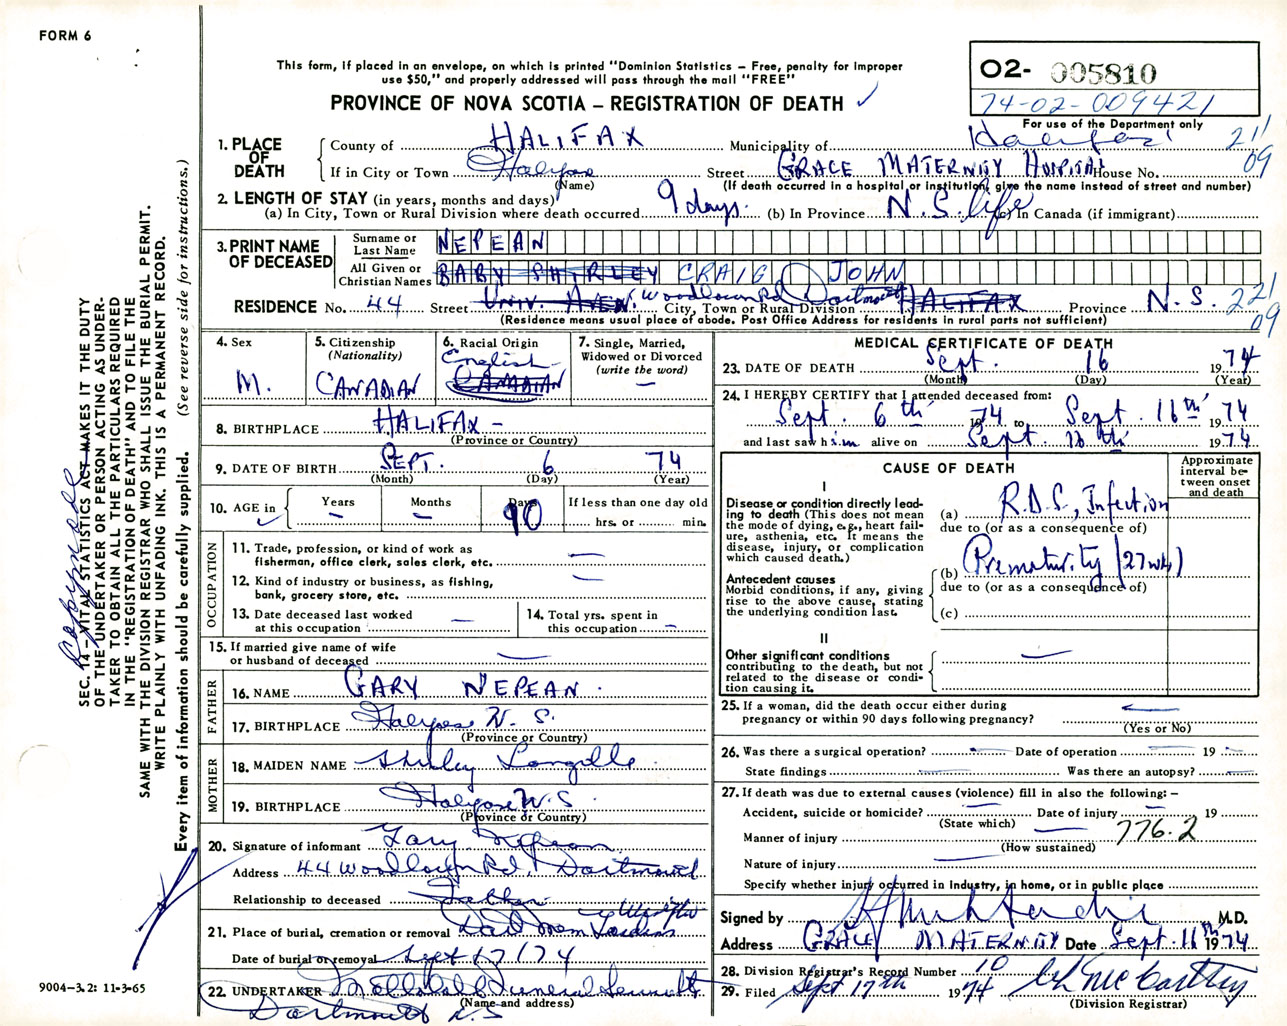 FORM 6
This form, if placed in an envelope, on which is printed "Dominion Statistics – Free, penalty for improper
use $50," and properly addressed will pass through the mail "FREE"
PROVINCE OF NOVA SCOTIA – REGISTRATION OF DEATH ✓
O2- 005810
74-02-009421
For use of the Department only
1. PLACE OF DEATH
County of HALIFAX Municipality of Halifax 21/09
If in City or Town Halifax Street GRACE MATERNITY HOSPITAL House No.
(Name) (If death occurred in a hospital or institution, give the name instead of street and number)
2. LENGTH OF STAY (in years, months and days)
(a) In City, Town or Rural Division where death occurred 9 days. (b) In Province N.S. life (c) In Canada (if immigrant)
3. PRINT NAME OF DECEASED
Surname or Last Name NEPEAN
All Given or Christian Names BABY SHIRLEY CRAIG JOHN
RESIDENCE No. 44 Street UNIV. AVEN. Woodlawn Rd City, Town or Rural Division Dartmouth HALIFAX Province N.S. 221/09
(Residence means usual place of abode. Post Office Address for residents in rural parts not sufficient)
4. Sex
M.
5. Citizenship
(Nationality)
CANADIAN
6. Racial Origin
English
CANADIAN
7. Single, Married,
Widowed or Divorced
(write the word)
—
8. BIRTHPLACE HALIFAX –
(Province or Country)
9. DATE OF BIRTH SEPT. 6 74
(Month) (Day) (Year)
10. AGE in ✓ Years – Months – Days 10 If less than one day old
hrs. or min.
OCCUPATION
11. Trade, profession, or kind of work as
fisherman, office clerk, sales clerk, etc. —
12. Kind of industry or business, as fishing,
bank, grocery store, etc. —
13. Date deceased last worked
at this occupation —
14. Total yrs. spent in
this occupation —
15. If married give name of wife
or husband of deceased —
FATHER
16. NAME GARY NEPEAN.
17. BIRTHPLACE Halifax N. S.
(Province or Country)
MOTHER
18. MAIDEN NAME Shirley Langille
19. BIRTHPLACE Halifax N.S.
(Province or Country)
20. Signature of informant Gary Nepean
Address 44 Woodlawn Rd, Dartmouth
Relationship to deceased Father
21. Place of burial, cremation or removal Dart Mem Gardens
Date of burial or removal Sept 17/74
22. UNDERTAKER Funeral
(Name and address)
Dartmouth N.S
MEDICAL CERTIFICATE OF DEATH
23. DATE OF DEATH Sept. 16 1974
(Month) (Day) (Year)
24. I HEREBY CERTIFY that I attended deceased from:
Sept. 6th 1974 to Sept. 16th 1974
and last saw him alive on Sept. 16th 1974
CAUSE OF DEATH
Approximate
interval be-
tween onset
and death
I
Disease or condition directly lead-
ing to death (This does not
mean the mode of dying, e.g., heart fail-
ure, asthenia, etc. It means the
disease, injury, or complication
which caused death.)
(a) R.D.S, Infection
due to (or as a consequence of)
Antecedent causes
Morbid conditions, if any, giving
rise to the above cause, stating
the underlying condition last.
(b) Prematurity (27 wks)
due to (or as a consequence of)
(c)
II
Other significant conditions
contributing to the death, but not
related to the disease or condi-
tion causing it. —
25. If a woman, did the death occur either during
pregnancy or within 90 days following pregnancy? —
(Yes or No)
26. Was there a surgical operation? — Date of operation — 19 –
State findings — Was there an autopsy? —
27. If death was due to external causes (violence) fill in also the following: –
Accident, suicide or homicide? — Date of injury – 19
(State which)
Manner of injury — 776.2
(How sustained)
Nature of injury —
Specify whether injury occurred in industry, in home, or in public place
Signed by M.D.
Address GRACE MATERNITY Date Sept. 16th 1974
28. Division Registrar's Record Number 10
29. Filed Sept 17th 1974 McCarthy
(Division Registrar)
SEC. 14 – VITAL STATISTICS ACT MAKES IT THE DUTY
OF THE UNDERTAKER OR PERSON ACTING AS UNDER-
TAKER TO OBTAIN ALL THE PARTICULARS REQUIRED
IN THE "REGISTRATION OF DEATH" AND TO FILE THE
SAME WITH THE DIVISION REGISTRAR WHO SHALL ISSUE THE BURIAL PERMIT.
WRITE PLAINLY WITH UNFADING INK. THIS IS A PERMANENT RECORD.
Every item of information should be carefully supplied. (See reverse side for instructions.)
9004-3.2: 11-3-65